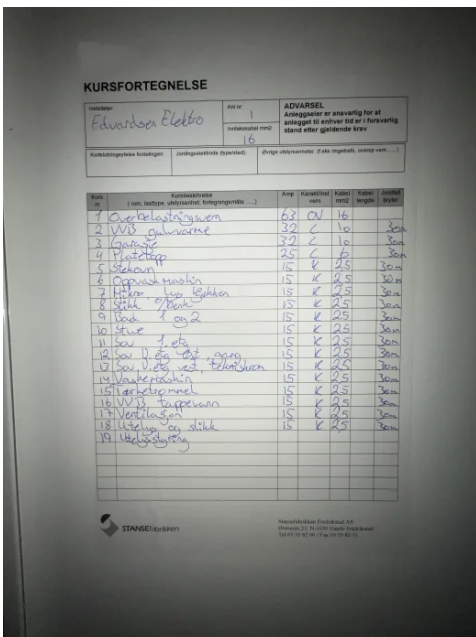 KURSFORTEGNELSE
Installatør
Edvardsen Elektro
Anl nr
1
Inntakskabel mm2
16
ADVARSEL
Anleggseier er ansvarlig for at
anlegget til enhver tid er i forsvarlig
stand etter gjeldende krav
Kortslutningsytelse fordelingen
Jordingselektrode (type/sted)
Øvrige utstyrsenheter
Kurs nr
Kursbeskrivelse
( rom, lasttype, utstyrsenhet, forlegningsmåte .....)
Amp
Karakt/Innst vern
Kabel mm2
Kabel lengde
Jordfeil bryter
1 Overbelastningsvern 63 OV 16
2 VVB gulvvarme 32 C 10 30m
3 Garasje 32 C 10 30m
4 Platetopp 25 C 6 30m
5 Stekovn 15 K 2.5 30m
6 Oppvaskmaskin 15 K 2.5 30m
7 Mikro, Lys kjøkken 15 K 2.5 30m
8 Stikk o/benk 15 K 2.5 30m
9 Bad 1 og 2 15 K 2.5 30m
10 Stue 15 K 2.5 30m
11 Sov 1. etg 15 K 2.5 30m
12 Sov U. etg øst, gang 15 K 2.5 30m
13 Sov, U. etg vest, tekniskrom 15 K 2.5 30m
14 Vaskemaskin 15 K 2.5 30m
15 Tørketrommel 15 K 2.5 30m
16 VVB tappevann 15 K 2.5 30m
17 Ventilasjon 15 K 2.5 30m
18 Utelys og stikk 15 K 2.5 30m
19 Utelysstyring
STANSEfabrikken
Stansefabrikken Fredrikstad AS